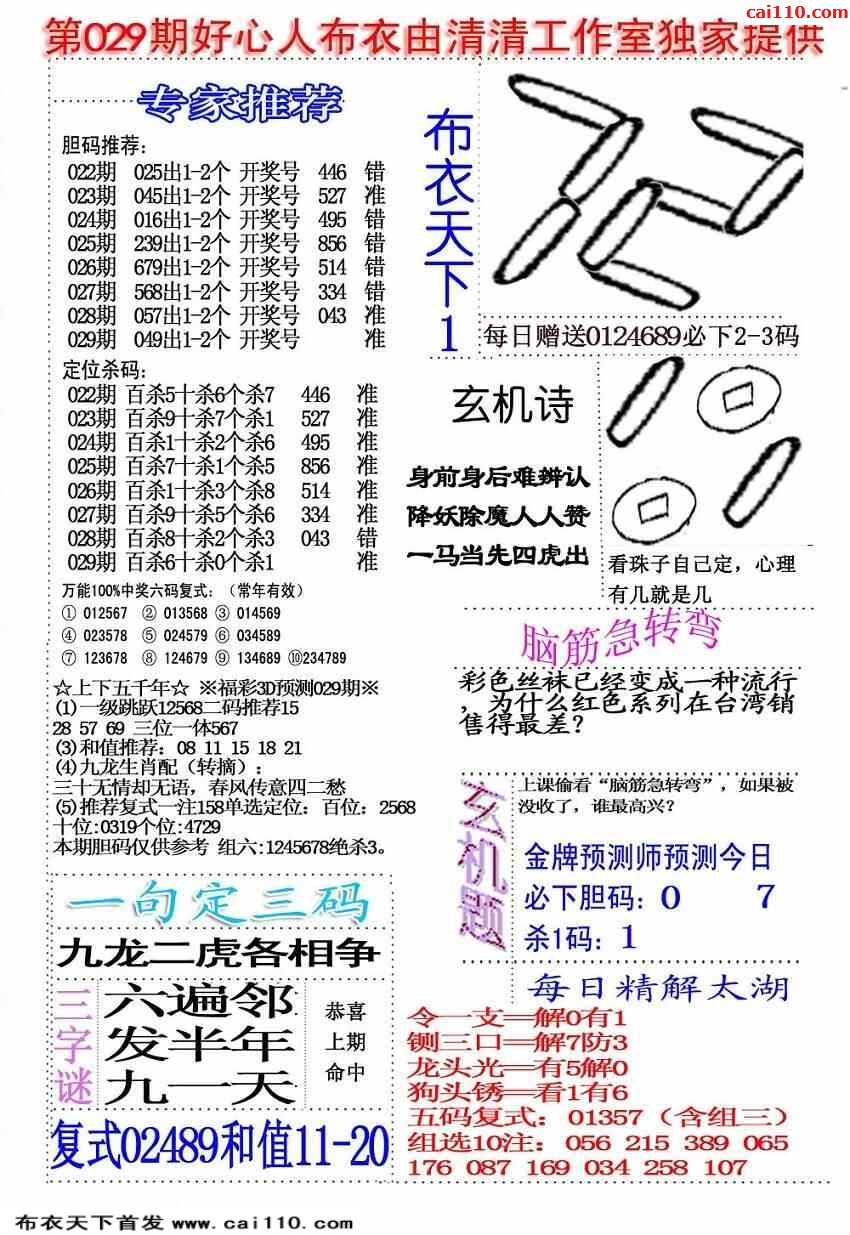 cai110.com
第029期好心人布衣由清清工作室独家提供
专家推荐
胆码推荐:
022期 025出1-2个 开奖号 446 错
023期 045出1-2个 开奖号 527 准
024期 016出1-2个 开奖号 495 错
025期 239出1-2个 开奖号 856 错
026期 679出1-2个 开奖号 514 错
027期 568出1-2个 开奖号 334 错
028期 057出1-2个 开奖号 043 准
029期 049出1-2个 开奖号 准
定位杀码:
022期 百杀5十杀6个杀7 446 准
023期 百杀9十杀7个杀1 527 准
024期 百杀1十杀2个杀6 495 准
025期 百杀7十杀1个杀5 856 准
026期 百杀1十杀3个杀8 514 准
027期 百杀9十杀5个杀6 334 准
028期 百杀8十杀2个杀3 043 错
029期 百杀6十杀0个杀1 准
万能100%中奖六码复式:（常年有效）
① 012567 ② 013568 ③ 014569
④ 023578 ⑤ 024579 ⑥ 034589
⑦ 123678 ⑧ 124679 ⑨ 134689 ⑩234789
☆上下五千年☆ ※福彩3D预测029期※
(1)一级跳跃12568二码推荐15
28 57 69 三位一体567
(3)和值推荐: 08 11 15 18 21
(4)九龙生肖配（转摘）:
三十无情却无语，春风传意四二愁
(5)推荐复式一注158单选定位: 百位: 2568
十位:0319个位:4729
本期胆码仅供参考 组六:1245678绝杀3。
一句定三码
九龙二虎各相争
三字谜
六遍邻
发半年
九一天
恭喜
上期
命中
复式02489和值11-20
布衣天下1
每日赠送0124689必下2-3码
玄机诗
身前身后难辨认
降妖除魔人人赞
一马当先四虎出
看珠子自己定，心理
有几就是几
脑筋急转弯
彩色丝袜已经变成一种流行
，为什么红色系列在台湾销
售得最差？
玄机题
上课偷看“脑筋急转弯”，如果被
没收了，谁最高兴？
金牌预测师预测今日
必下胆码: 0 7
杀1码: 1
每日精解太湖
令一支＝解0有1
铡三口＝解7防3
龙头光＝有5解0
狗头锈＝看1有6
五码复式: 01357（含组三）
组选10注: 056 215 389 065
176 087 169 034 258 107
布衣天下首发 www.cai110.com